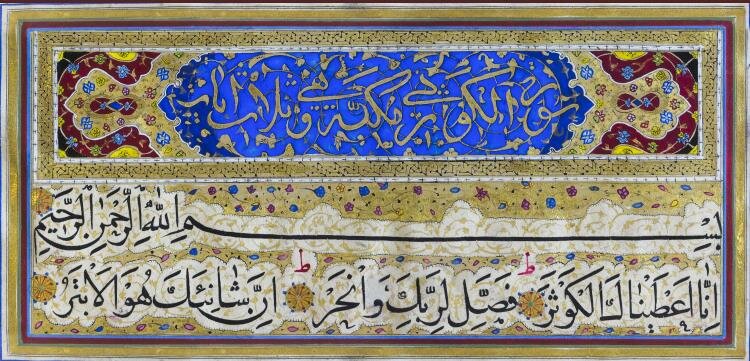 سورة الكوثر مكية وهي ثلاث آيات
بسم الله الرحمن الرحيم
ط ط
انا اعطيناك الكوثر فصل لربك وانحر ان شانئك هو الابتر